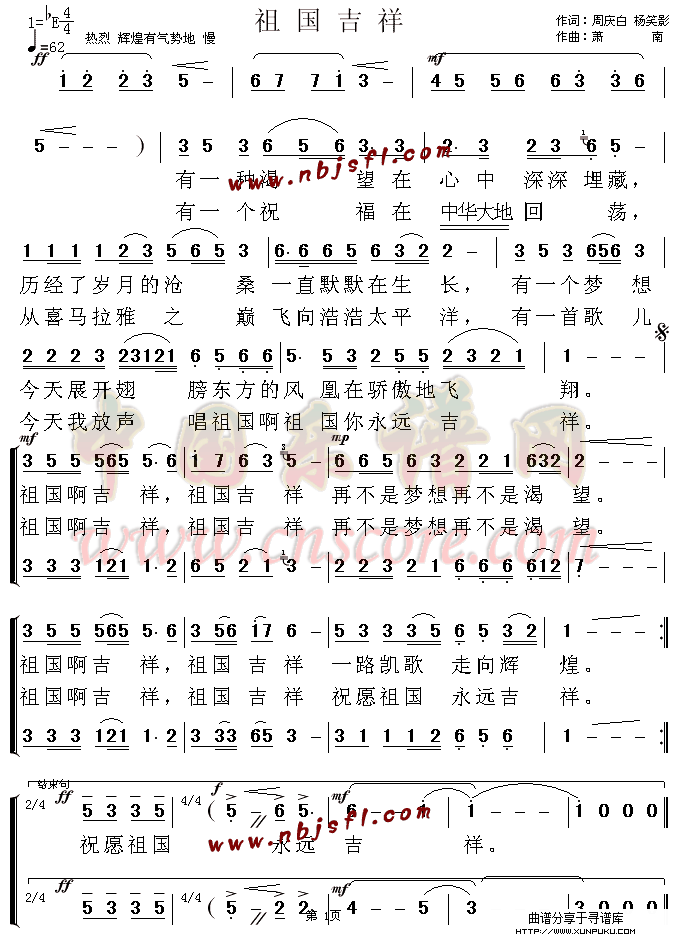 祖国吉祥
1=♭E 4/4
♩=62 热烈 辉煌有气势地 慢
作词：周庆白 杨笑影
作曲：萧 南
ff mf
1 2 2 3 | 6 7 7 1 3 - | 4 5 5 6 6 3 6 |
5 - - - ) | 3 5 3 6 6 5 6 3. 3 | 2. 3 2 3 1 6 5 - |
有一种渴 望在 心中 深深 埋藏，
有一个祝 福在 中华大地 回 荡，
1 1 1 1 2 3 5 6 5 3 | 6. 6 6 5 6 3 2 2 - | 3 5 3 656 3 |
历经了岁月的沧 桑 一直默默在生 长， 有一个梦 想
从喜马拉雅 之 巅 飞向浩浩太平 洋， 有一首歌 儿
2 2 2 3 23121 6 5 6 6 | 5. 5 3 2 5 5 2 3 2 1 | 1 - - - |
今天展开翅 膀东方的风 凰在骄傲地飞 翔。
今天我放声 唱祖国啊祖 国你永远 吉 祥。
mf mp
3 5 5 5 565 5. 6 | 1 7 6 3 3 5 - | 6 6 5 6 3 2 2 1 6 632 | 2 - - - |
祖国啊吉 祥，祖国吉 祥 再不是梦想再不是渴 望。
祖国啊吉 祥，祖国吉 祥 再不是梦想再不是渴 望。
3 3 3 3 121 1. 2 | 6 5 2 1 1 3 - | 2 2 3 2 1 6 6 6 6 612 | 7 - - - |
3 5 5 5 565 5. 6 | 3 56 17 6 6 - | 5 3 3 3 3 5 6 5 3 2 | 1 - - - :||
祖国啊吉 祥，祖国 吉 祥 一路凯歌 走向辉 煌。
祖国啊吉 祥，祖国 吉 祥 祝愿祖国 永远吉 祥。
3 3 3 3 121 1. 2 | 3 23 65 3 3 - | 3 1 1 1 1 2 6 5 6 5 | 1 - - - :||
结束句
2/4 ff 5 3 3 5 | 4/4 f ( 5 - 6 5. | mf 6 - - 1 | 1 - - - | 1 0 0 0 ||
祝愿祖国 永远 吉 祥。
2/4 ff 5 3 3 5 | 4/4 ( 5 - 2 3. | mf 4 - - 5 | 3 - - - | 3 0 0 0 ||
第 1页
曲谱分享于寻谱库
HTTP://WWW.XUNPUKU.COM
www.nbjsfl.com
www.nbjsfl.com
中国乐谱网
www.cnscore.com